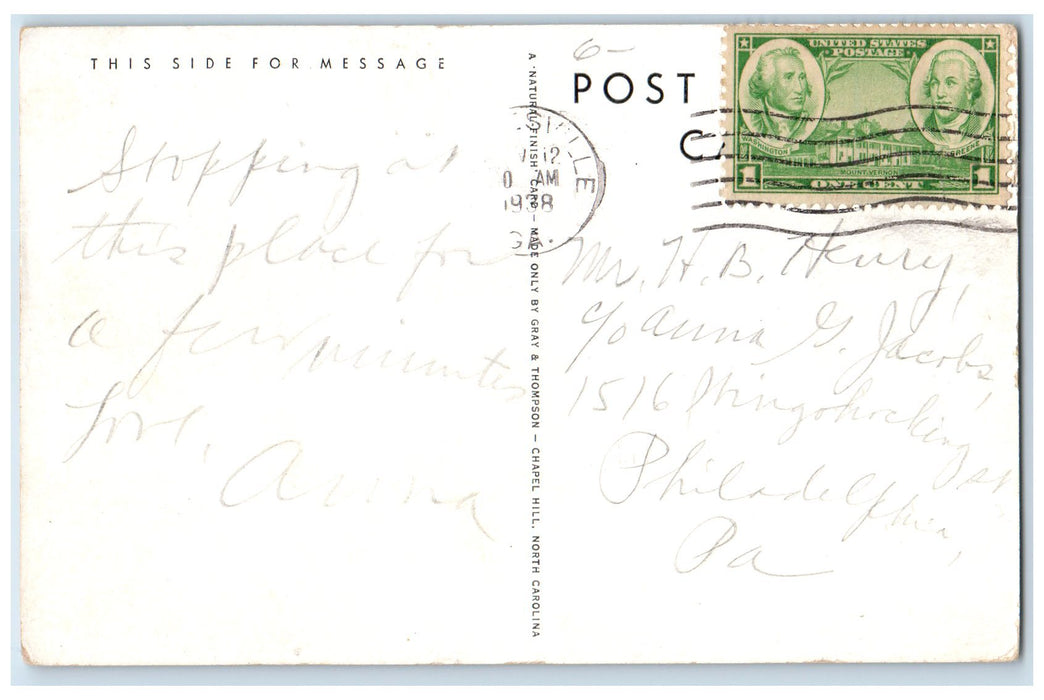 THIS SIDE FOR MESSAGE
Stopping at
this place for
a few minutes
Love,
Anna
A "NATURAL-FINISH" CARD — MADE ONLY BY GRAY & THOMPSON — CHAPEL HILL, NORTH CAROLINA
6-
POST
C
UNITED STATES
POSTAGE
WASHINGTON
GREENE
MOUNT VERNON
1 ONE CENT 1
VILLE
12
AM
1938
GA.
Mr. H. B. Henry,
c/o Anna G. Jacobs,
1516 Wingohocking St
Philadelphia,
Pa